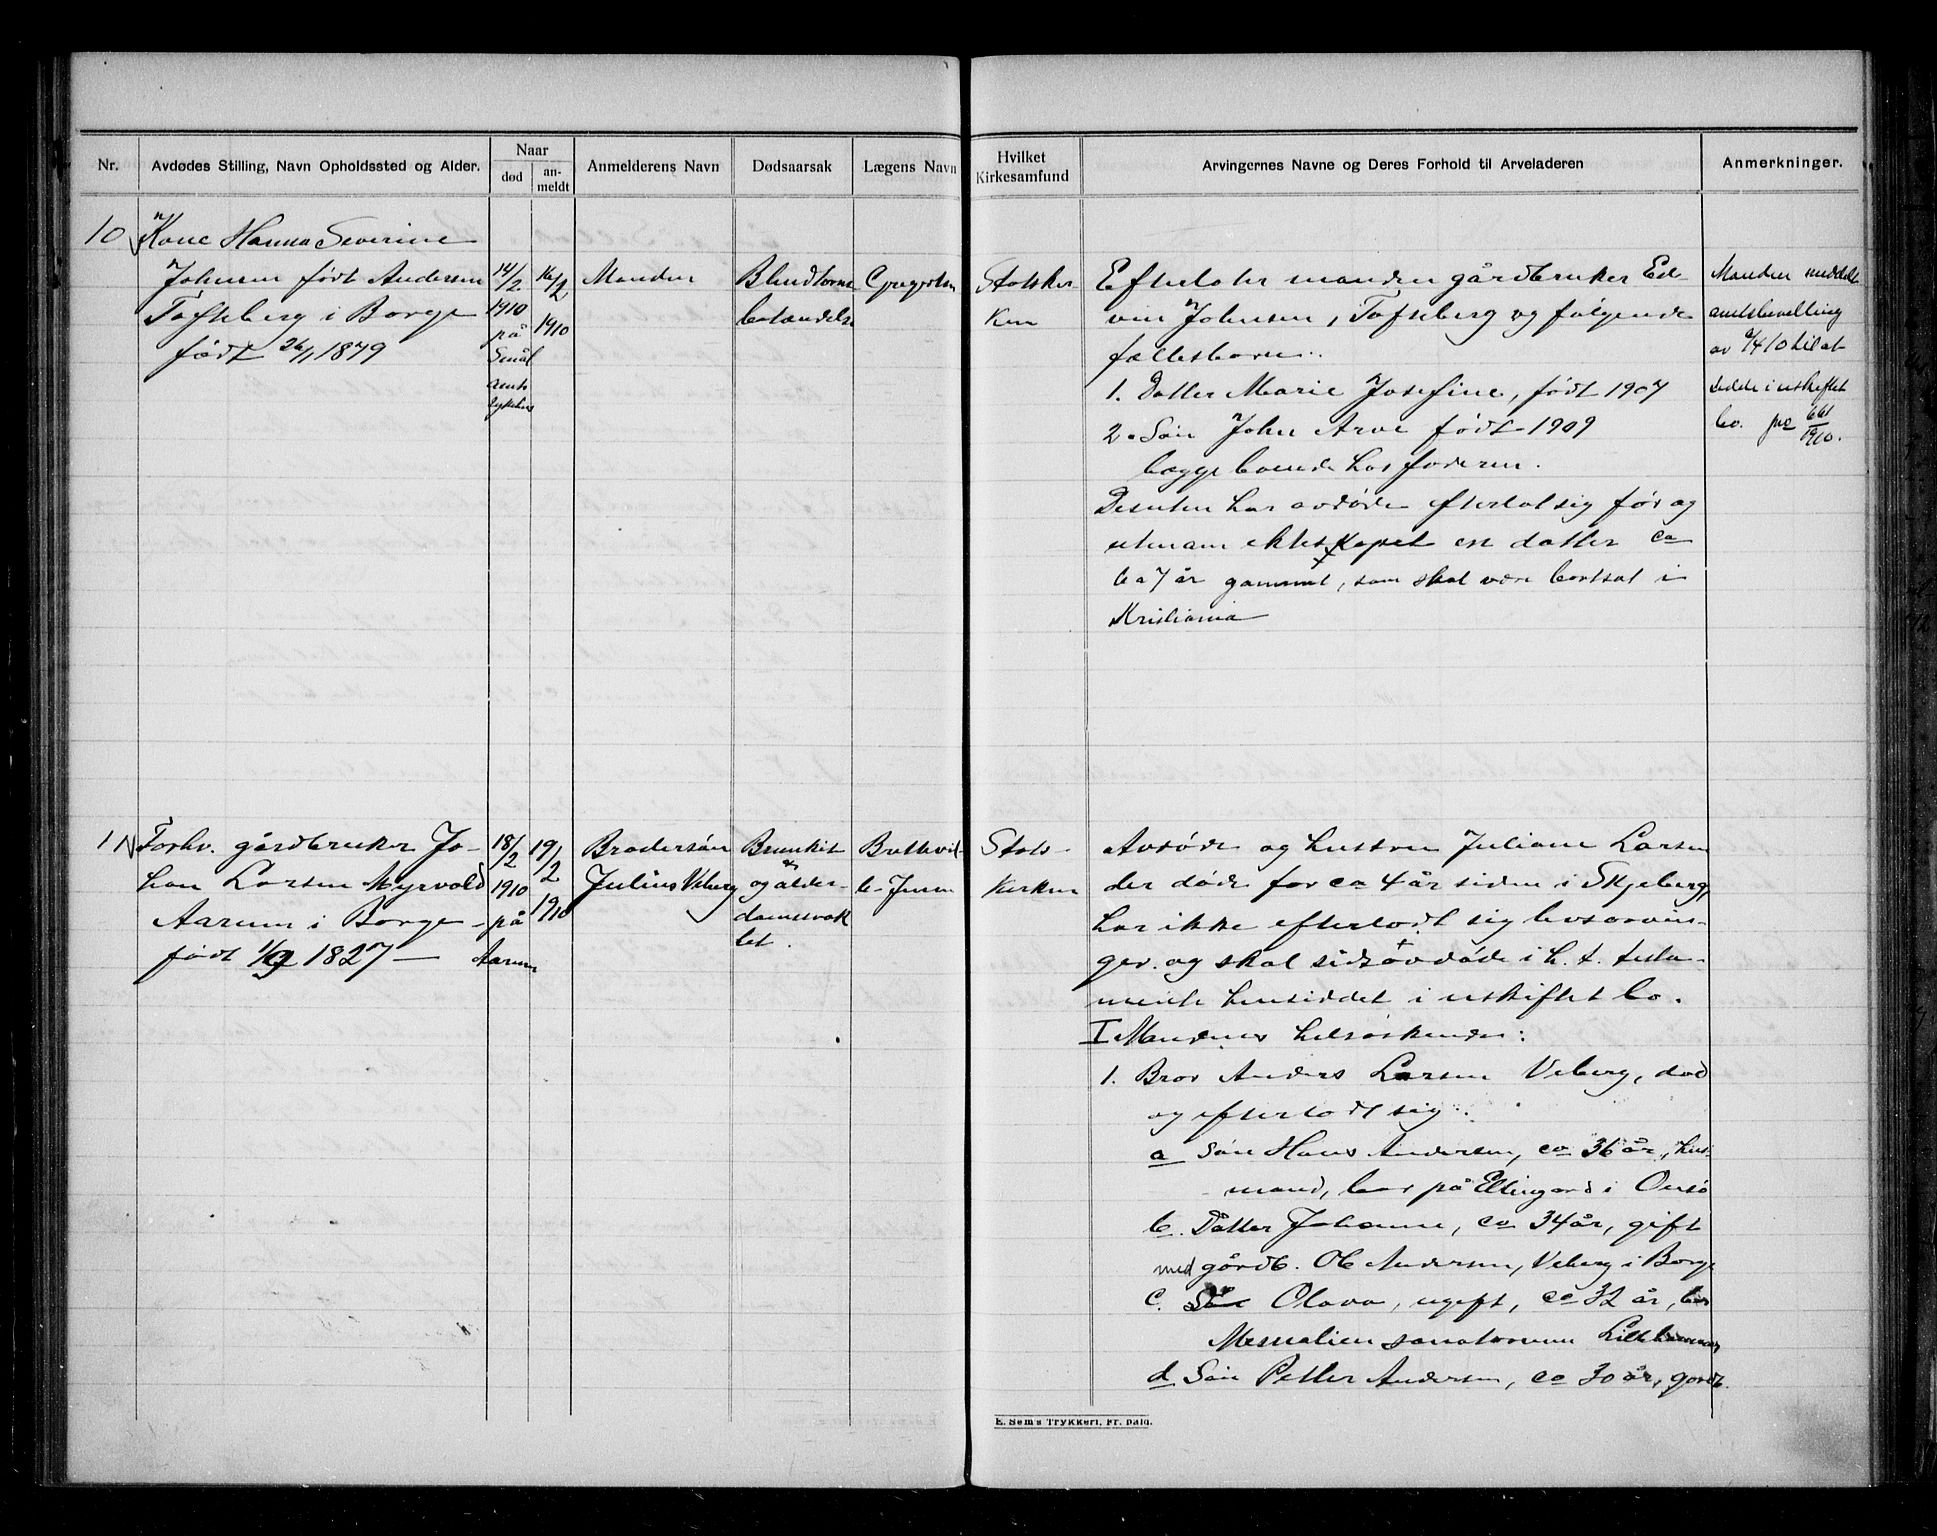 Nr.
Avdødes Stilling, Navn Opholdssted og Alder.
Naar
død
an-
meldt
Anmelderens Navn
Dødsaarsak
Lægens Navn
Hvilket
Kirkesamfund
Arvingernes Navne og Deres Forhold til Arveladeren
Anmerkninger.
10
Kone Hanna Severine
Johnsen født Andersen
Tofteberg i Borge
født 26/1 1879
14/2
1910
på
Smål
amts
sykehus
16/2
1910
Manden
Blindtarms
betændelse
Gregersen
Statskir
ken
Efterlater manden gårdbruker Ed
vin Johnsen, Tofteberg og følgende
fællesbarn:
1. Datter Marie Josefine, født 1907
2. Søn John Arve født 1909
begge boende hos faderen.
Desuten har avdøde efterlat sig før og
utenom ekteskapet en datter ca
6 a 7 år gammel, som skal være bortsat i
Kristiania
Manden meddelt
amtsbevilling
av 9/4 10 til at
sidde i uskiftet
bo. 661
1910.
11
Forhv. gårdbruker Jo-
han Larsen Myrvold
Aarum i Borge
født 1/9 1827
18/2
1910
på
Aarum
19/2
1910
Brodersøn
Julius Veberg
Brunkit
og alder-
domssvak
het.
Brettevil-
le-Jensen
Stats-
kirken
Avdøde og hustru Juliane Larsen
der døde for ca 4 år siden i Skjeberg,
har ikke efterladt sig livsarvin-
ger. og skal sidstavdøde i h. t. testa-
mente hensiddet i uskiftet bo.
I Mandens helsøskende:
1. Bror Anders Larsen Veberg, død
og efterladt sig:
a Søn Hans Andersen, ca 36 år, hus-
mand, bor på Elingård i Onsø
b. Datter Johanne, ca 34 år, gift
med gårdb. Ole Andersen, Veberg i Borge
c. Olava, ugift, ca 32 år, bor
Mesnalien sanatorium Lillehammer
d Søn Petter Andersen, ca 30 år, gårdb.
E. Sem's Trykkeri, Fr. hald.